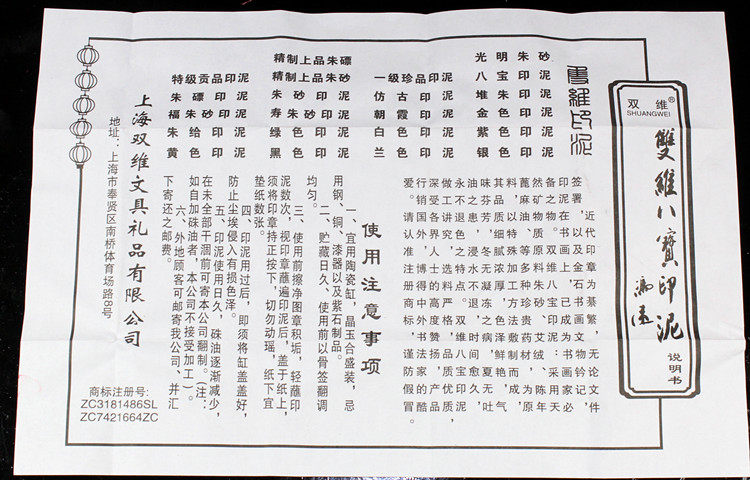 双 维®
SHUANGWEI
雙維八寶印泥
说明书
近代印章为綦繁，无论文件
签署，以及金石书画文物钤记，
印泥在书画上，已成为书画家必
备之物。双维八宝印泥：采用天
然矿物质原料朱砂、艾绒、陈年
蓖麻油、等多种珍贵药材，为原
料，以特殊加工方法敷制而成，
其品质细腻浓厚，色泽鲜艳，气
味芬芳、冬无凝冻之病，夏无吐
油之患，浸水不退，时间愈久，
永不退色之特点。双维八宝印泥
做工讲究，选料严格、品质优质，
深受各界人士的高度赞扬，产品
行销国外，博得中外书法家的酷
爱。请认准注册商标，谨防假冒。
光明朱砂
八宝印泥
堆朱印泥
金色印泥
紫色印泥
银色印泥
一级珍品印泥
仿古印泥
朝霞印泥
白色印泥
兰色印泥
精制上品朱磦
精制上品朱砂
朱砂印泥
寿砂印泥
绿色印泥
黑色印泥
特级贡品印泥
朱磦印泥
福砂印泥
朱给印泥
黄色印泥
使用注意事项
一、宜用陶瓷缸，晶玉合盛装，忌
用钢、铜、漆器以及紫石制品。
二、贮藏日久、使用前以骨签翻调
均匀。
三、使用前擦净图章积垢，轻蘸印
泥数次，视印章蘸遍印泥后，盖于纸上，
须将印章持正按下，切勿动瑶，纸下宜
垫纸数张。
四、印泥用过后，即须将缸盖盖好，
防止尘埃侵入有损色泽。
五、印泥使用日久，硃油逐渐减少，
在未全部干涸前可寄本公司翻制。（注：
如自加硃油者，本公司不接受加工）。
六、外地顾客可邮寄我公司、并汇
下寄还之邮费。
上海双维文具礼品有限公司
地址：上海市奉贤区南桥体育场路8号
商标注册号:
ZC3181486SL
ZC7421664ZC